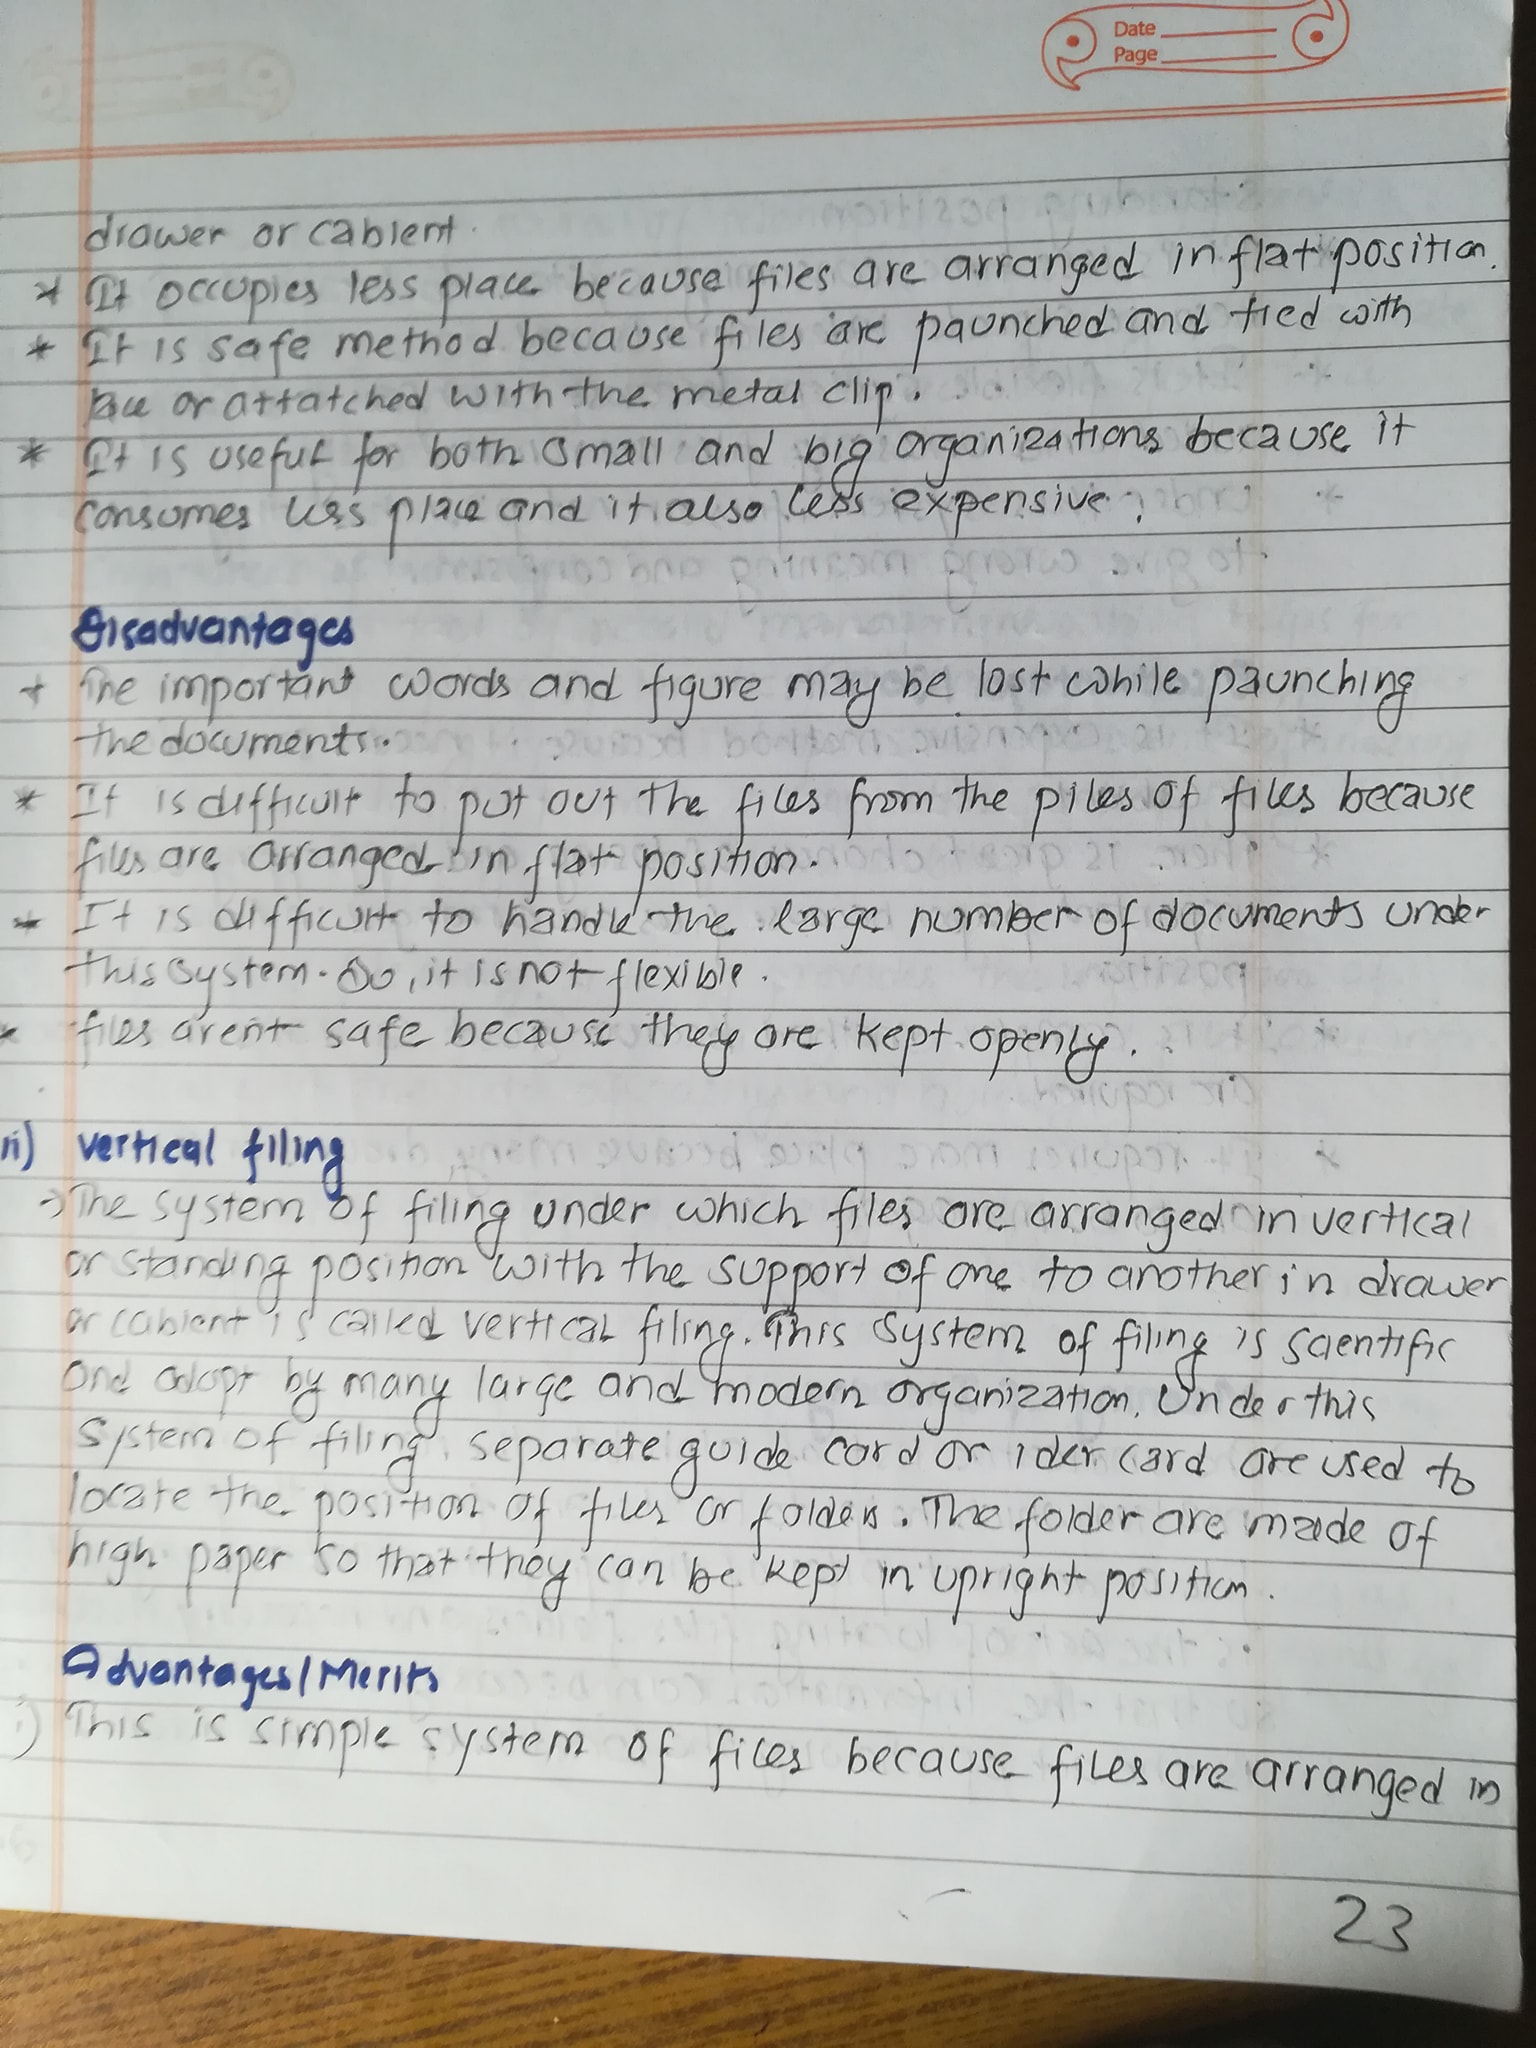 Date
Page
drawer or cabient.
* It occupies less place because files are arranged in flat position.
* It is safe method because files are paunched and tied with
lace or attatched with the metal clip.
* It is useful for both small and big organizations because it
consumes less place and it also less expensive.
Disadvantages
* The important words and figure may be lost while paunching
the documents.
* It is difficult to put out the files from the piles of files because
files are arranged in flat position.
* It is difficult to handle the large number of documents under
this system. So, it is not flexible.
* files arent safe because they are kept openly.
ii) vertical filing
→ The system of filing under which files are arranged in vertical
or standing position with the support of one to another in drawer
or cabient is called vertical filing. This system of filing is scientific
and adopt by many large and modern organization. Under this
system of filing, separate guide card or card are used to
locate the position of files or folders. The folder are made of
high paper so that they can be kept in upright position.
Advantages/Merits
i) This is simple system of files because files are arranged in
23